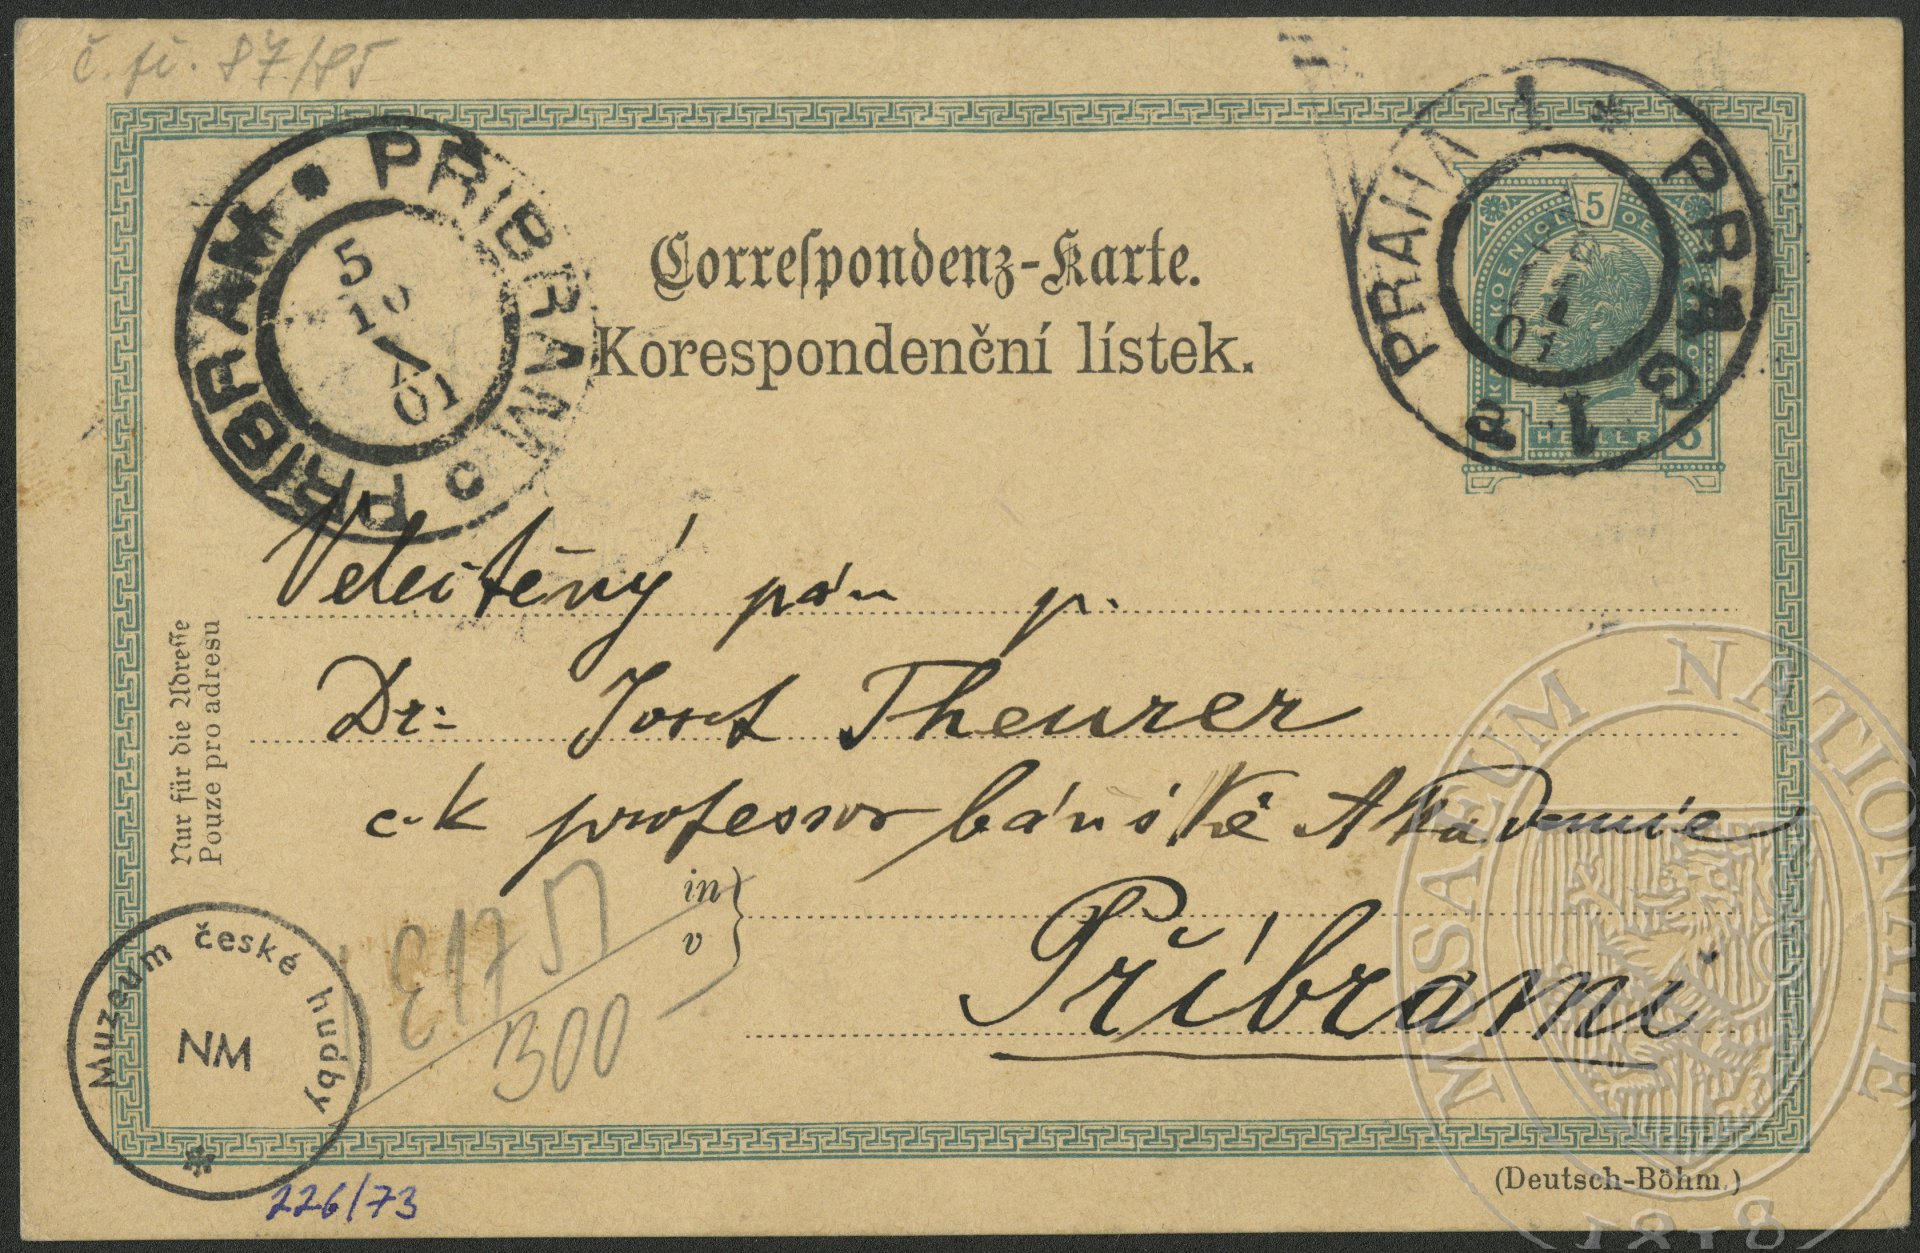 č. př. 87/85
PŘIBRAM
PRIBRAM
5
10
01
PRAHA 1
PRAG 1
01
5
HELLER
Correspondenz-Karte.
Korespondenční lístek.
Nur für die Adresse
Pouze pro adresu
Velectěný pán p.
Dr: Josef Theurer
c.k professor báňské Akademie
in
v
Příbrami
E 17
300
Muzeum české hudby
NM
226/73
(Deutsch-Böhm.)
MUSAEUM NATIONALE
1818